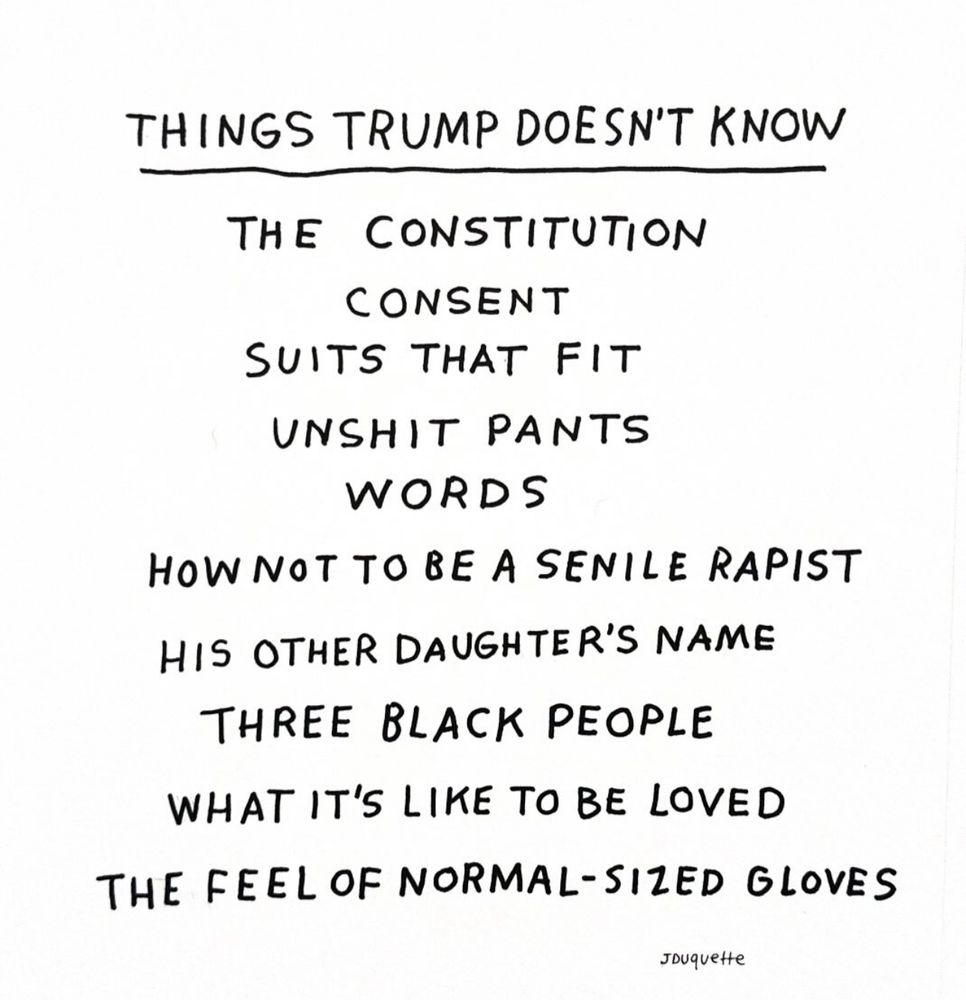 THINGS TRUMP DOESN'T KNOW
THE CONSTITUTION
CONSENT
SUITS THAT FIT
UNSHIT PANTS
WORDS
HOW NOT TO BE A SENILE RAPIST
HIS OTHER DAUGHTER'S NAME
THREE BLACK PEOPLE
WHAT IT'S LIKE TO BE LOVED
THE FEEL OF NORMAL-SIZED GLOVES
JDuquette